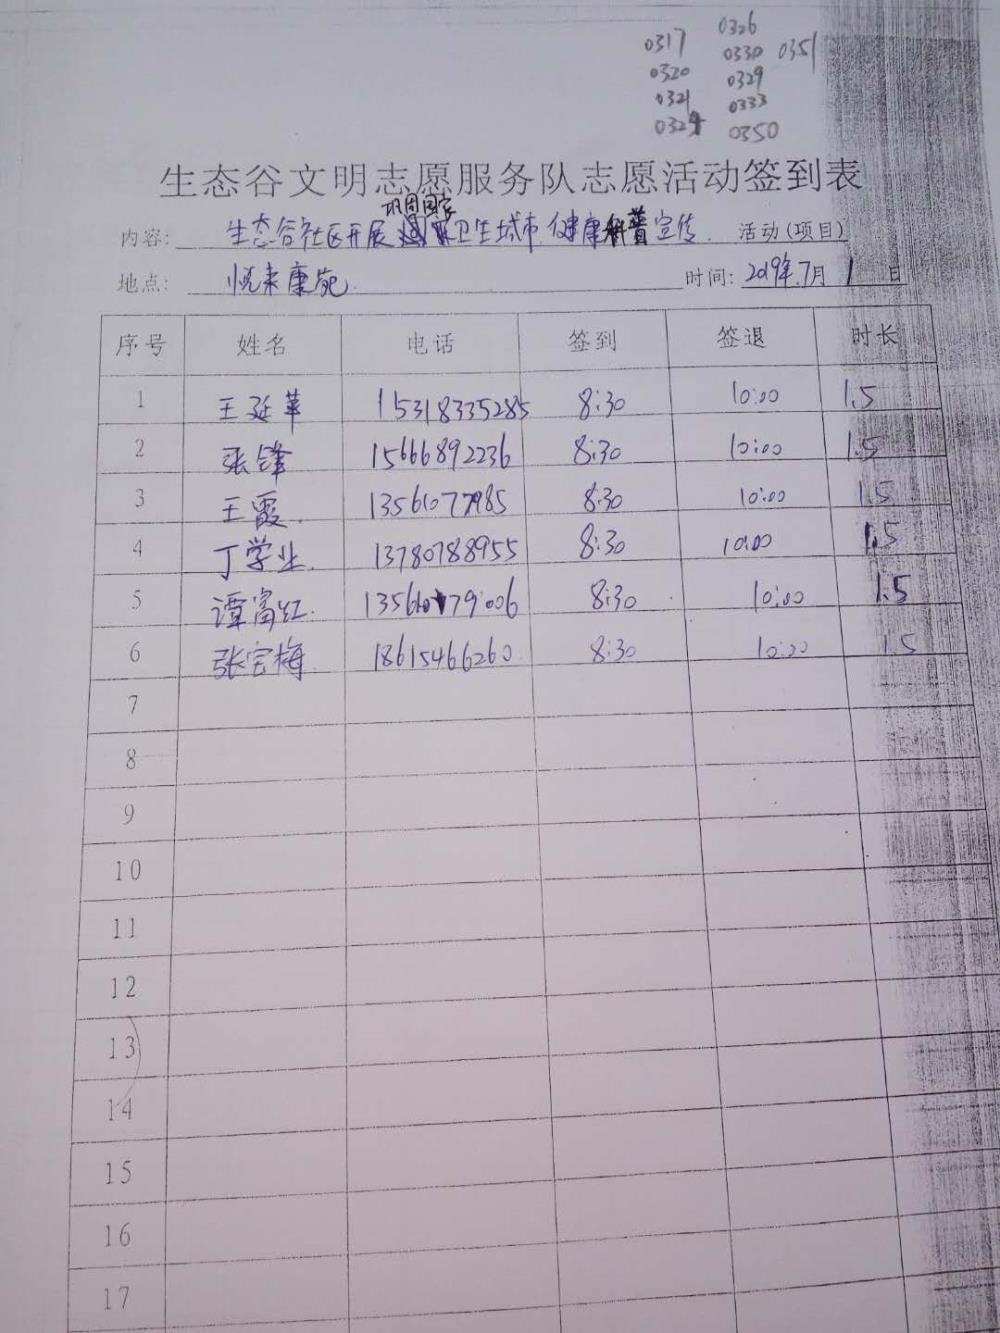 0317 0326
0320 0330 0351
0321 0329
0324 0333
0350
生态谷文明志愿服务队志愿活动签到表
巩固国家
内容: 生态谷社区开展 卫生城市健康科普宣传 活动(项目)
地点: 悦来康苑 时间: 2019年7月1日
序号 姓名 电话 签到 签退 时长
1 王延苹 15318335285 8:30 10:00 1.5
2 张锋 15666892236 8:30 10:00 1.5
3 王霞 13561077985 8:30 10:00 1.5
4 丁学业 13780788955 8:30 10:00 1.5
5 谭富红 13561079006 8:30 10:00 1.5
6 张宝梅 18615466260 8:30 10:00 1.5
7
8
9
10
11
12
13
14
15
16
17